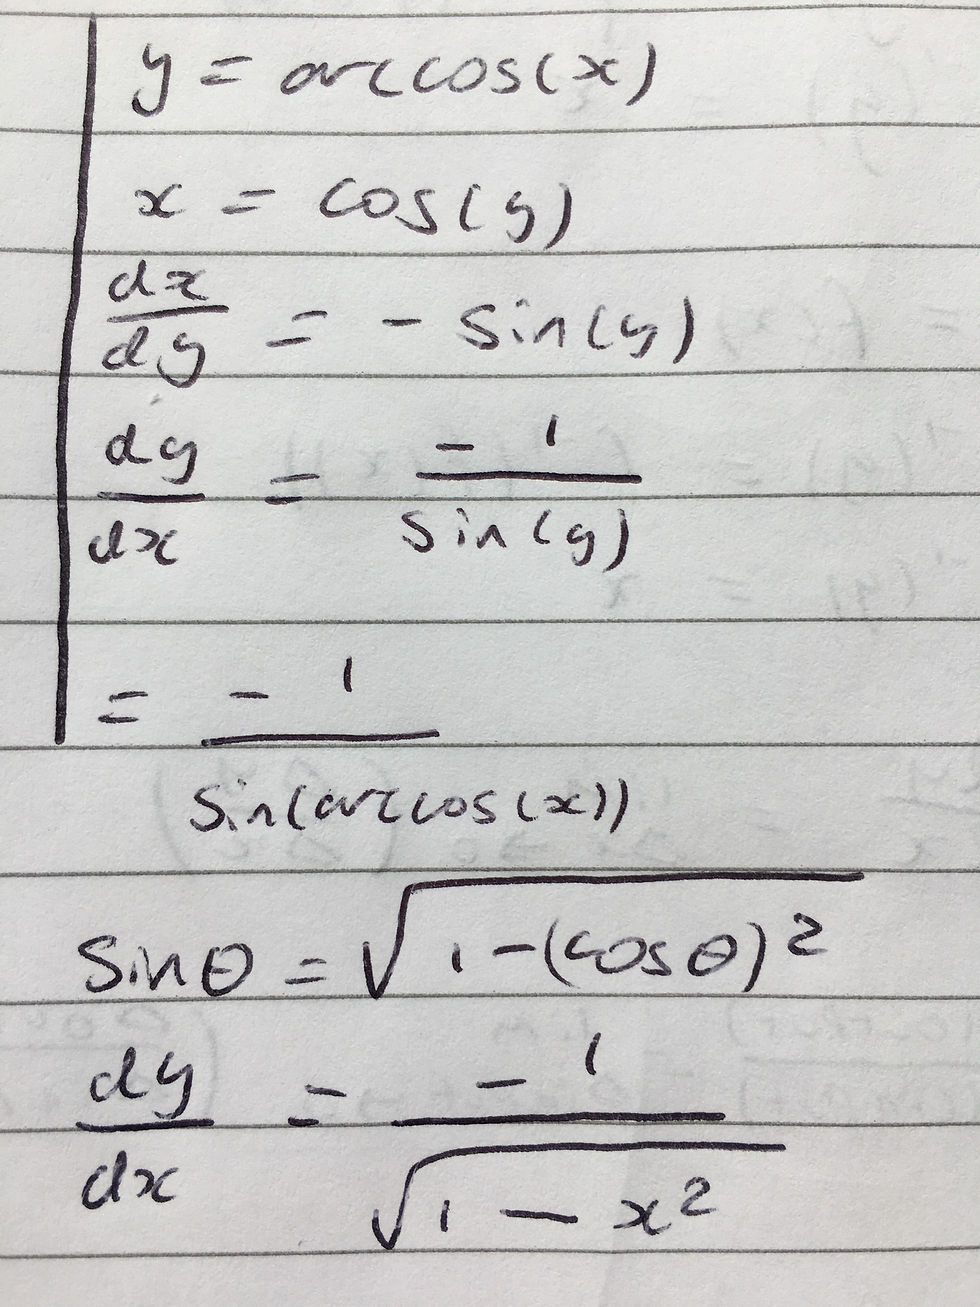 y = arccos(x)
x = cos(y)
dx/dy = - sin(y)
dy/dx = - 1/sin(y)
= - 1/sin(arccos(x))
sinθ = √(1-(cosθ)²)
dy/dx = - 1/√(1 - x²)